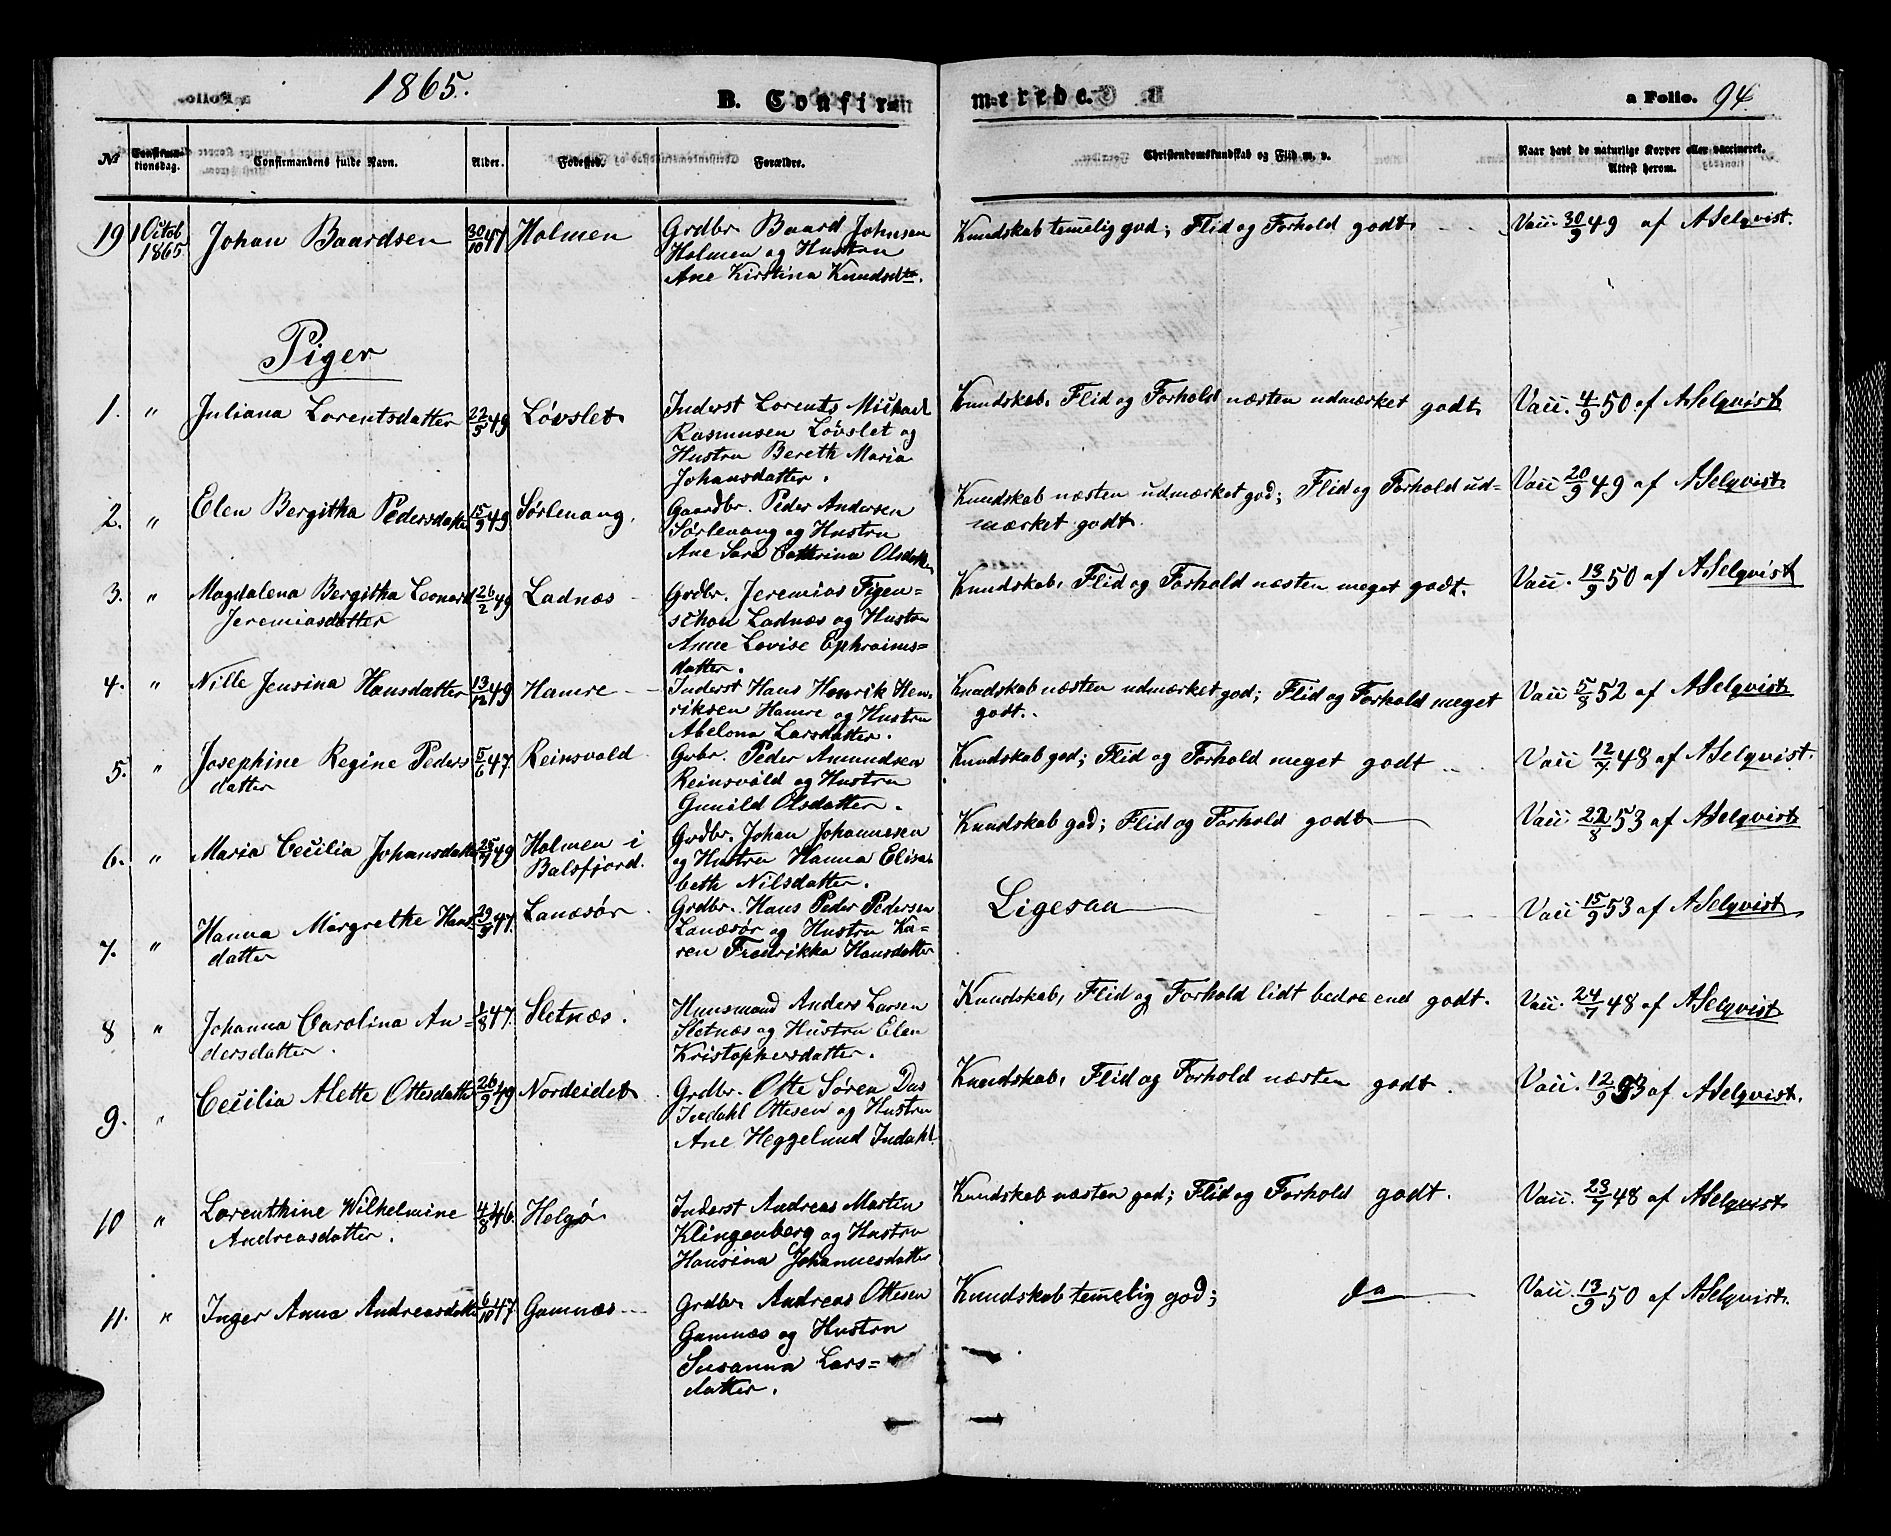 1865.
B. Confirmerede.
a Folio. 94.
No
Confirmationsdag.
Confirmandens fulde Navn.
Alder.
Fødested.
Forældre.
Christendomskundskab og Flid m. v.
Naar havt de naturlige Kopper eller vaccineret.
Attest herom.
19 1 Octob 1865 Johan Baardsen 30/10 47 Holmen
Grdbr Baard Johnsen
Holmen og Hustru
Ane Kirstina Knudsdtr.
Kundskab temelig god; Flid og Forhold godt
Vacc 30/9 49 af ASelqvist.
Piger
1. " Juliana Lorentsdatter 22/5 49 Løvslet
Inderst Lorents Mickael
Rasmusen Løvslet og
Hustru Bereth Maria
Johansdatter.
Kundskab, Flid og Forhold næsten udmærket godt
Vacc. 4/9 50 af ASelqvist
2. " Elen Bergitha Pedersdatter 15/9 49 Sørlenang.
Gaardbr. Peder Andersen
Sørlenang og Hustru
Ane Sara Cathrina Olsdatter
Kundskab næsten udmærket god; Flid og Forhold ud-
mærket godt
Vacc 20/9 49 af ASelqvist
3. " Magdalena Bergitha Leonard
Jeremiasdatter 26/2 49 Ladnæs
Grdbr. Jeremias Figen=
schou Ladnæs og Hustru
Anne Lovise Ephraims=
datter.
Kundskab, Flid og Forhold næsten meget godt.
Vacc. 13/9 50 af ASelqvist
4. " Nille Jensina Hansdatter 13/12 49 Hamre
Inderst Hans Henrik Hen-
riksen Hamre og Hustru
Abelona Larsdatter.
Kundskab næsten udmærket god; Flid og Forhold meget
godt.
Vacc 5/8 52 af ASelqvist
5. " Josephine Regine Peders
datter 5/6 47 Reinsvold
Grbr. Peder Amundsen
Reinsvold og Hustru
Gunild Olsdatter.
Kundskab god; Flid og Forhold meget godt
Vacc 12/7 48 af ASelqvist.
6. " Maria Cecilia Johansdatter 49 Holmen i
Balsfjord.
Grdbr. Johan Johannesen
og Hustru Hanna Elisa-
beth Nilsdatter.
Kundskab god; Flid og Forhold godt
Vacc 22/8 53 af ASelqvist
7. " Hanna Margrethe Hans
datter 47. Lanæsør
Grdbr. Hans Peder Pedersen
Lanæsør og Hustru Ka=
ren Fredrikka Hansdatter
Ligesaa
Vacc 15/9 53 af ASelqvist
8 " Johanna Carolina An=
dersdatter. 1/8 47. Sletnæs.
Huusmand Anders Larsen
Sletnæs og Hustru Elen
Kristophersdatter.
Kundskab, Flid og Forhold lidt bedre end godt.
Vacc. 24/7 48 af ASelqvist
9. " Cecilia Alette Ottesdatter 26/9 49 Nordeidet
Grdbr. Otte Søren Das
Indahl Ottesen og Hustru
Ane Heggelund Indahl
Kundskab, Flid og Forhold næsten godt.
Vacc. 12/9 53 af ASelqvist.
10 " Lorenthine Wilhelmine
Andreasdatter. 4/8 46. Helgø
Inderst Andreas Martin
Klingenberg og Hustru
Hansina Johannesdatter
Kundskab næsten god; Flid og Forhold godt.
Vacc. 23/7 48 af ASelqvist
11. " Inger Anna Andreasdatter 6/10 47 Gamnæs
Grdbr. Andreas Ottesen
Gamnæs og Hustru
Susanna Lars=
datter.
Kundskab temelig god; do
Vacc. 13/9 50 af ASelqvist.